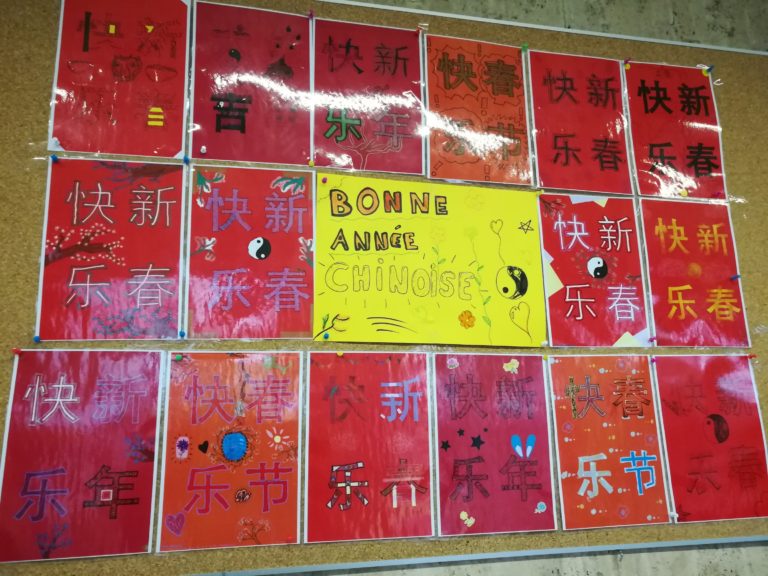 快新
乐年
快春
乐节
快新
乐春
快新
乐春
快新
乐春
快新
乐春
BONNE
ANNÉE
CHINOISE
快新
乐春
快新
乐春
快新
乐年
快春
乐节
快新
乐春
快新
乐年
快春
乐节
快新
乐春